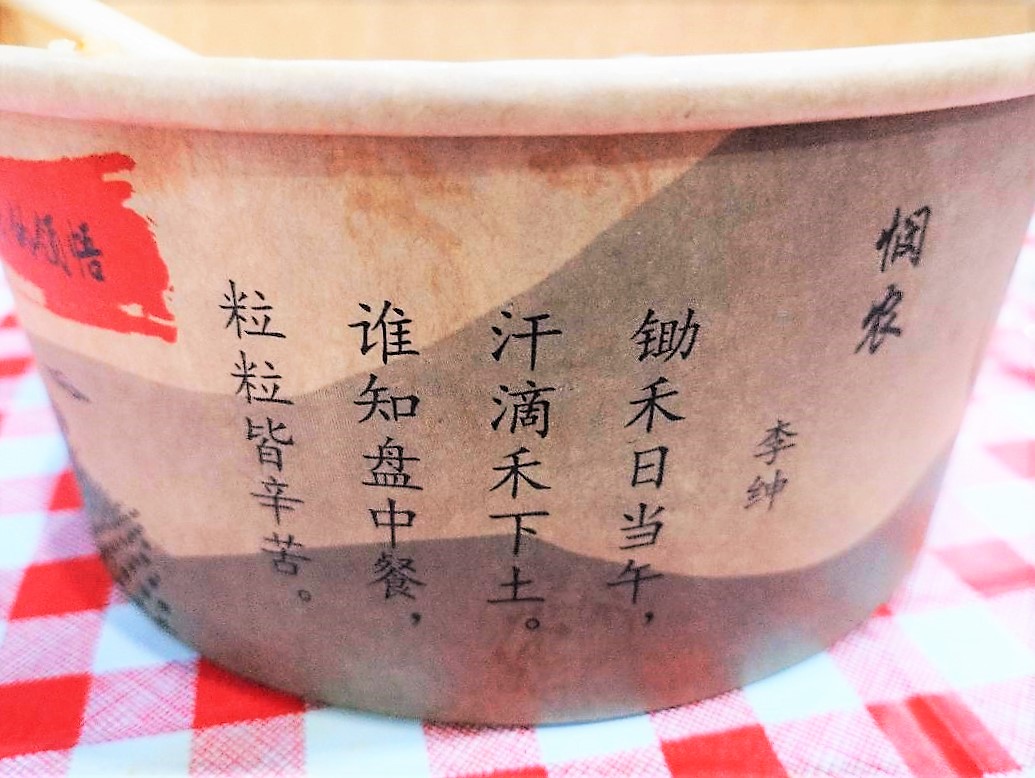 悯农
李绅
锄禾日当午，
汗滴禾下土。
谁知盘中餐，
粒粒皆辛苦。